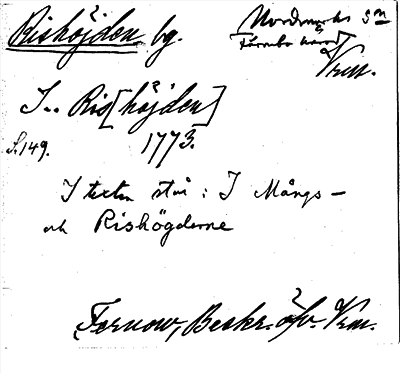 Rishöjden bg. Nordmarks sn
Färnebo härad
Vrm.
I.. Ris[höjden]
S. 149. 1773.
I texten står: I Mångs-
och Rishögderne
Fernow, Beskr. öfv. Vrm.